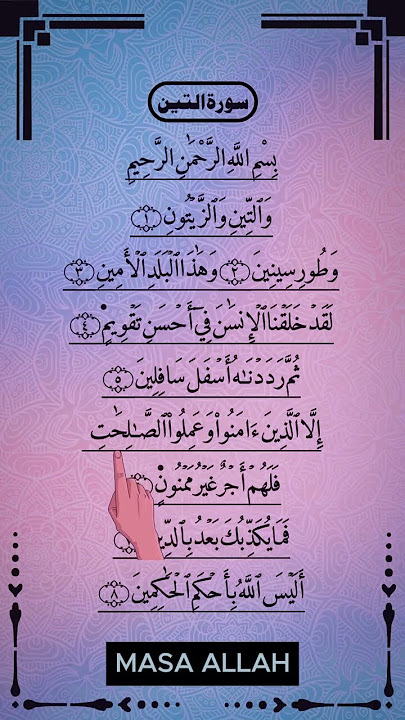 سورة التين
بِسْمِ اللَّهِ الرَّحْمَٰنِ الرَّحِيمِ
وَٱلتِّينِ وَٱلزَّيْتُونِ ١
وَطُورِ سِينِينَ ٢ وَهَٰذَا ٱلْبَلَدِ ٱلْأَمِينِ ٣
لَقَدْ خَلَقْنَا ٱلْإِنسَٰنَ فِىٓ أَحْسَنِ تَقْوِيمٍ ٤
ثُمَّ رَدَدْنَٰهُ أَسْفَلَ سَافِلِينَ ٥
إِلَّا ٱلَّذِينَ ءَامَنُوا۟ وَعَمِلُوا۟ ٱلصَّٰلِحَٰتِ
فَلَهُمْ أَجْرٌ غَيْرُ مَمْنُونٍ
فَمَا يُكَذِّبُكَ بَعْدُ بِٱلدِّينِ
أَلَيْسَ ٱللَّهُ بِأَحْكَمِ ٱلْحَٰكِمِينَ ٨
MASA ALLAH